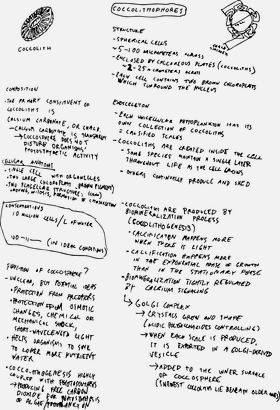 COCCOLITHOPHORES
COCCOLITH
STRUCTURE
- SPHERICAL CELLS
- 5-100 MICROMETERS ACROSS
- ENCLOSED BY CALCAREOUS PLATES (COCCOLITHS)
- 2-25 MICROMETERS ACROSS
- EACH CELL CONTAINS TWO BROWN CHLOROPLASTS
WHICH SURROUND THE NUCLEUS
COMPOSITION
- THE PRIMARY CONSTITUENT OF
COCCOLITHS IS
CALCIUM CARBONATE, OR CHALK
- CALCIUM CARBONATE IS TRANSPARENT
→ COCCOSPHERE DOES NOT
DISTURB ORGANISMS'
PHOTOSYNTHETIC ACTIVITY
CELLULAR ANATOMY
- SINGLE CELL WITH ORGANELLES
- TWO LARGE CHLOROPLASTS (BROWN PIGMENT)
- TWO FLAGELLAR STRUCTURES
MITOSIS, FORMATION OF CYTOSKELETON
CONCENTRATIONS
10 MILLION CELLS/L OF WATER
(IN IDEAL CONDITIONS)
FUNCTION OF COCCOSPHERE?
- UNCLEAR, BUT POTENTIAL IDEAS
• PROTECTION FROM PREDATORS
• PROTECTION FROM OSMOTIC
CHANGES, CHEMICAL OR
MECHANICAL SHOCK,
SHORT-WAVELENGTH LIGHT
• HELPS ORGANISMS TO SINK
TO LOWER MORE NUTRIENT
WATER
- COCCOLITHOGENESIS HIGHLY
COUPLED WITH PHOTOSYNTHESIS
→ PRODUCING FREE CARBON
DIOXIDE FOR PHOTOSYNTHESIS
OF ALGAE
EXOSKELETON
- EACH UNICELLULAR PHYTOPLANKTON HAS ITS
OWN COLLECTION OF COCCOLITHS
= CALCIFIED SCALES
- COCCOLITHS ARE CREATED INSIDE THE CELL
- SOME SPECIES MAINTAIN A SINGLE LAYER
THROUGHOUT LIFE AS THE CELL GROWS
- OTHERS CONTINUALLY PRODUCE AND SHED
- COCCOLITHS ARE PRODUCED BY
BIOMINERALIZATION PROCESS
(COCCOLITHOGENESIS)
- CALCIFICATION HAPPENS MORE
WHEN THERE IS LIGHT
- CALCIFICATION HAPPENS MORE
IN THE EXPONENTIAL PHASE OF GROWTH
THAN IN THE STATIONARY PHASE
- BIOMINERALIZATION TIGHTLY REGULATED
BY CALCIUM SIGNALING
GOLGI COMPLEX
→ CRYSTALS GROW AND SHAPE
(ACIDIC POLYSACCHARIDES CONTROLLING)
→ WHEN EACH SCALE IS PRODUCED,
IT IS EXPORTED IN A GOLGI-DERIVED
VESICLE
→ ADDED TO THE INNER SURFACE
OF COCCOSPHERE
(NEWEST COCCOLITHS LIE BENEATH OLDER ONES)